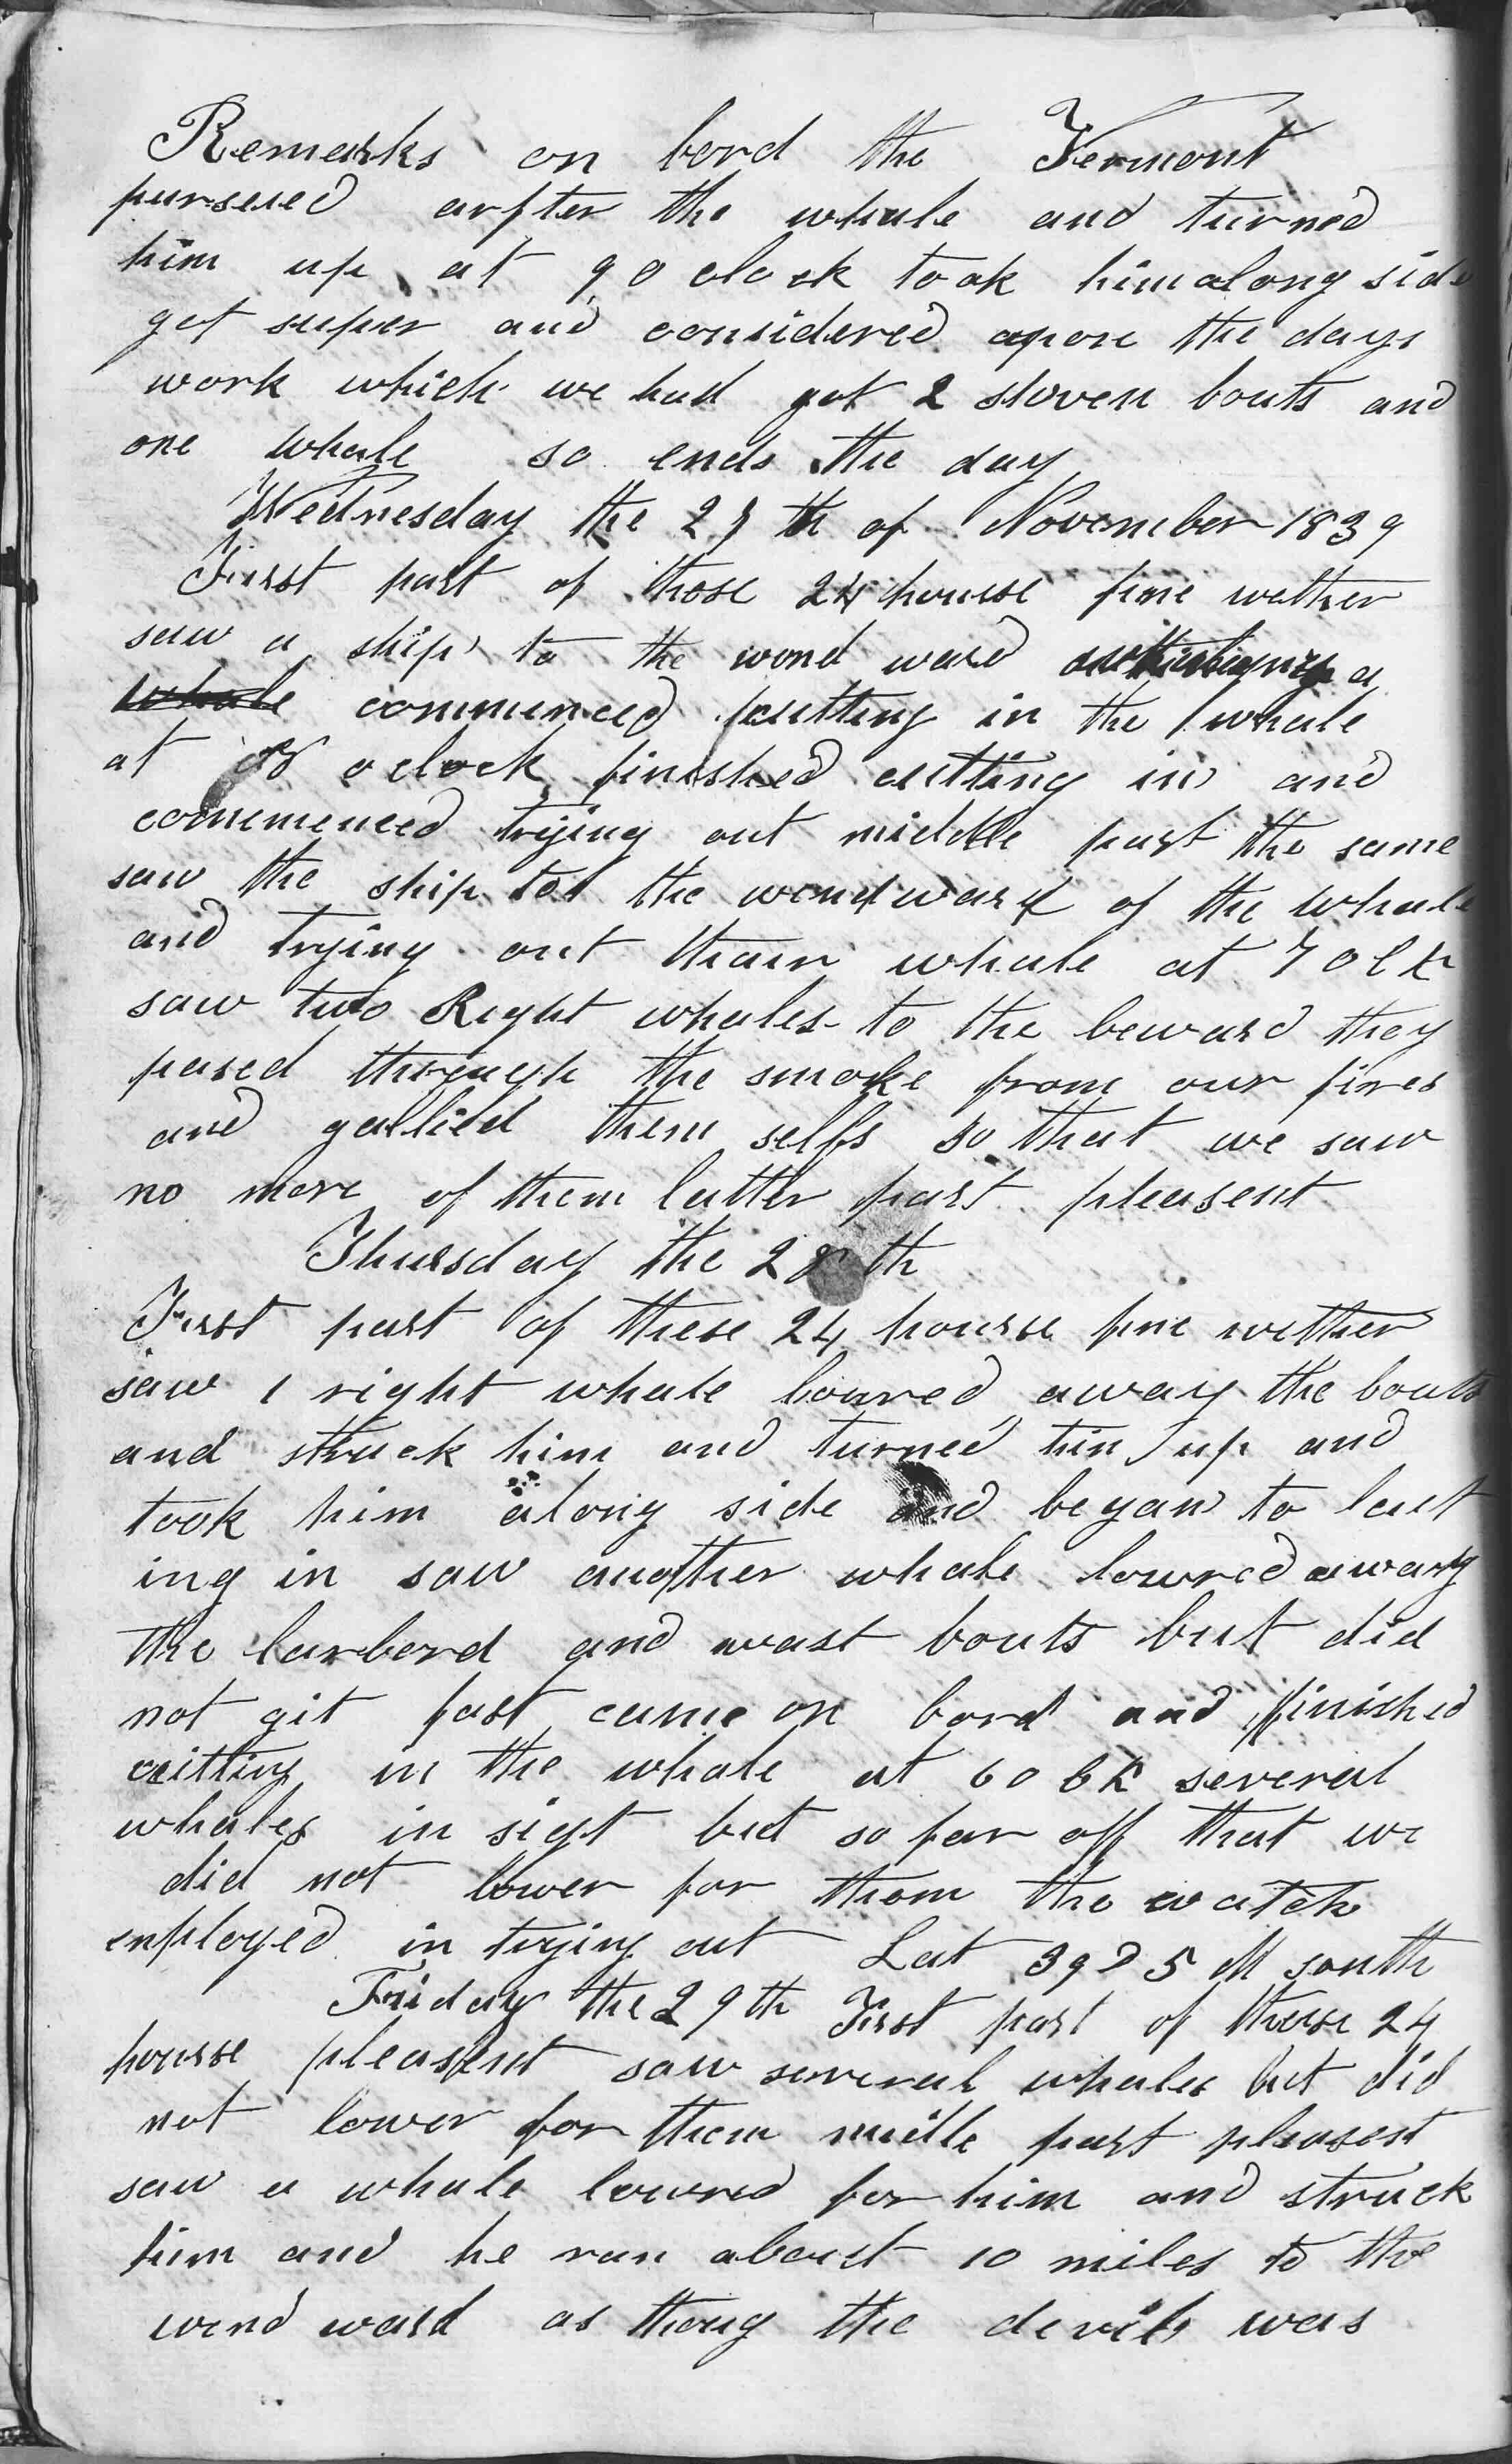 Remarks on bord the Vermont
pursued arfter the whale and turned
him up at 9 o clock took him along side
got super and considered apon the days
work which we had got 2 stoven boats and
one whale so ends the day
Wednesday the 27 th of November 1839
First part of those 24 hourse fine wether
saw a ship to the wond ward a
whale commenced cutting in the whale
at 8 o clock finished cutting in and
commenced trying out middle part the same
saw the ship to the wond ward of the whale
and trying out thair whale at 7 o lk
saw two Right whales to the leward they
pased through the smoke from our fires
and gallied them selfs so that we saw
no more of them latter part pleasent
Thursday the 28 th
First part of these 24 hourse fine wether
saw 1 right whale lowred away the boats
and struck him and turned him up and
took him along side and began to cut
ing in saw another whale lowred away
the larbord and wast boats but did
not git fast came on bord and finished
cutting in the whale at 6 o lk several
whales in sigt but so far off that we
did not lower for them the watch
employed in trying out Lat 39 D 5 M south
Friday the 29 th First part of these 24
hourse pleasent saw several whales but did
not lower for them midle part pleasent
saw a whale lowred for him and struck
him and he run about 10 miles to the
wind ward as thoug the devil was